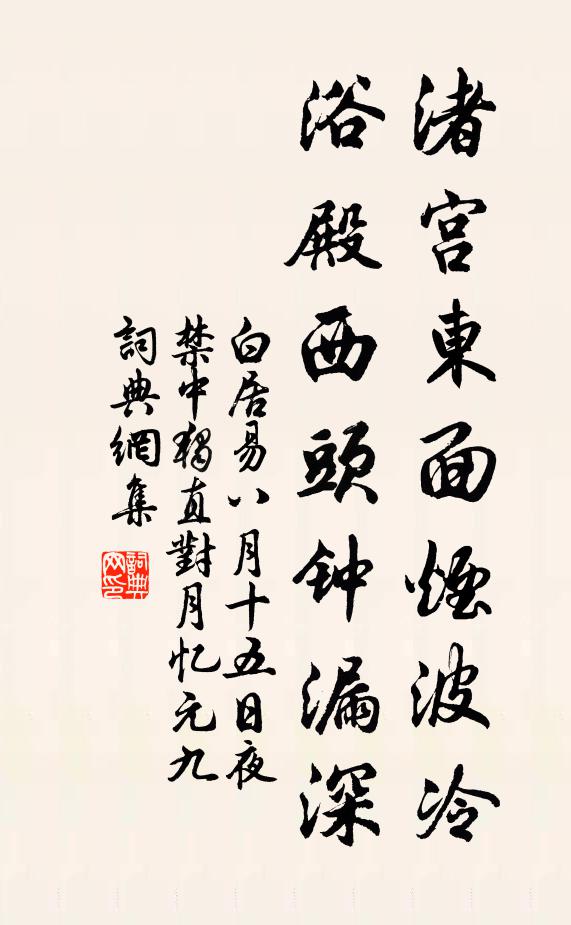 渚宮東面煙波冷
浴殿西頭钟漏深
白居易八月十五日夜
禁中獨直對月忆元九
詞典網集
詞典網印